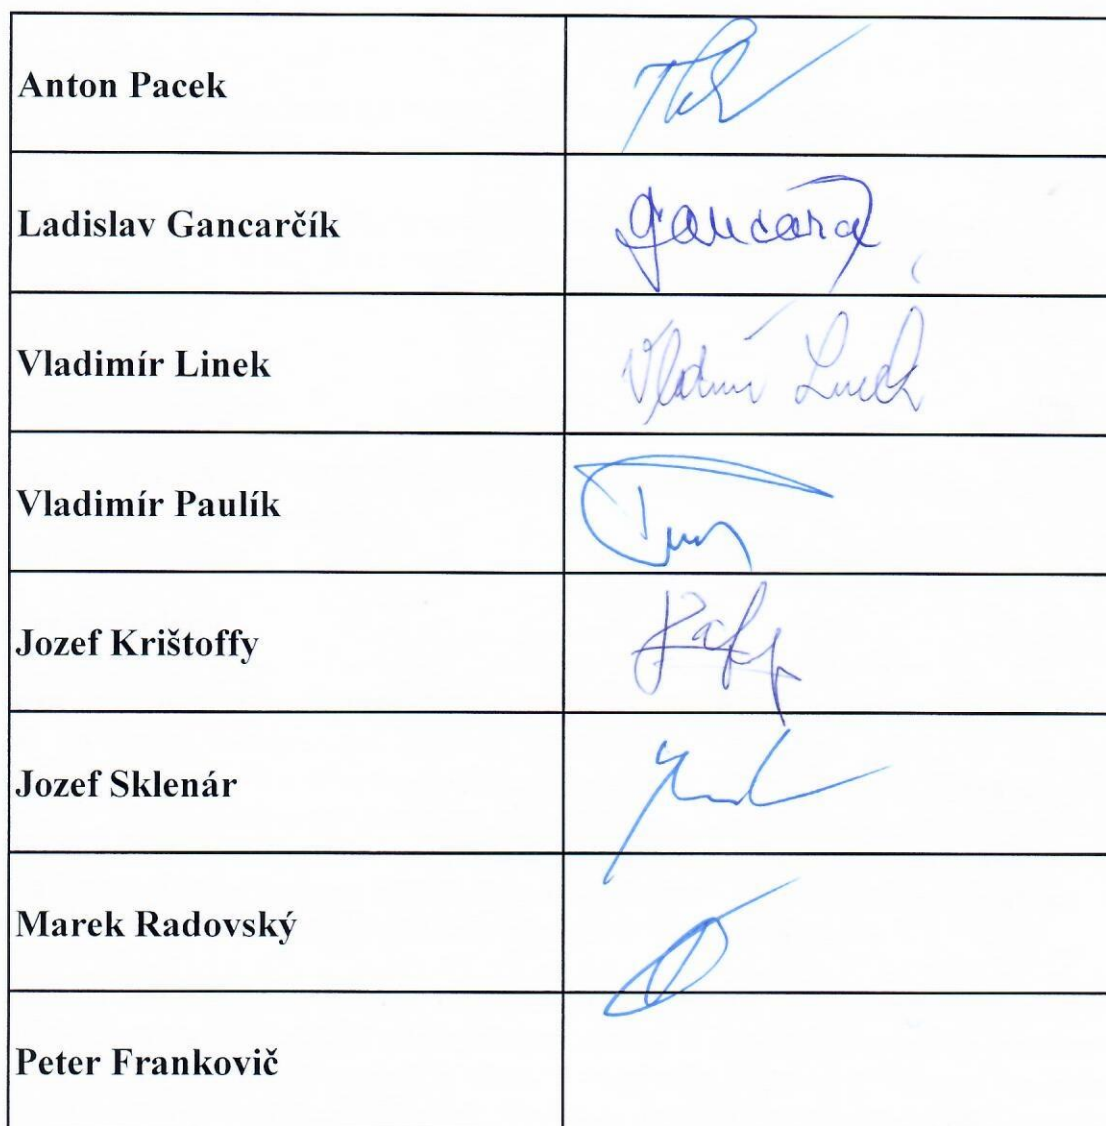 Anton Pacek
Ladislav Gancarčík
Vladimír Linek
Vladimír Linek
Vladimír Paulík
Jozef Krištoffy
Jozef Sklenár
Marek Radovský
Peter Frankovič